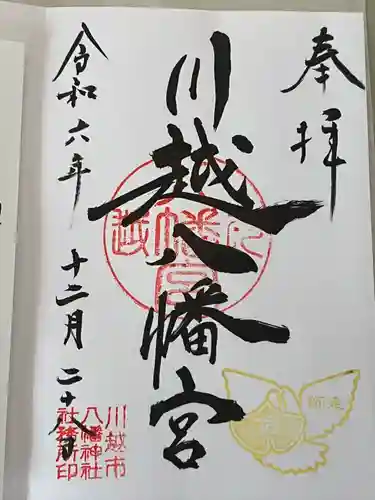 奉拝
川越八幡宮
令和六年 十二月 二十八日
川越市
八幡神社
社務所印